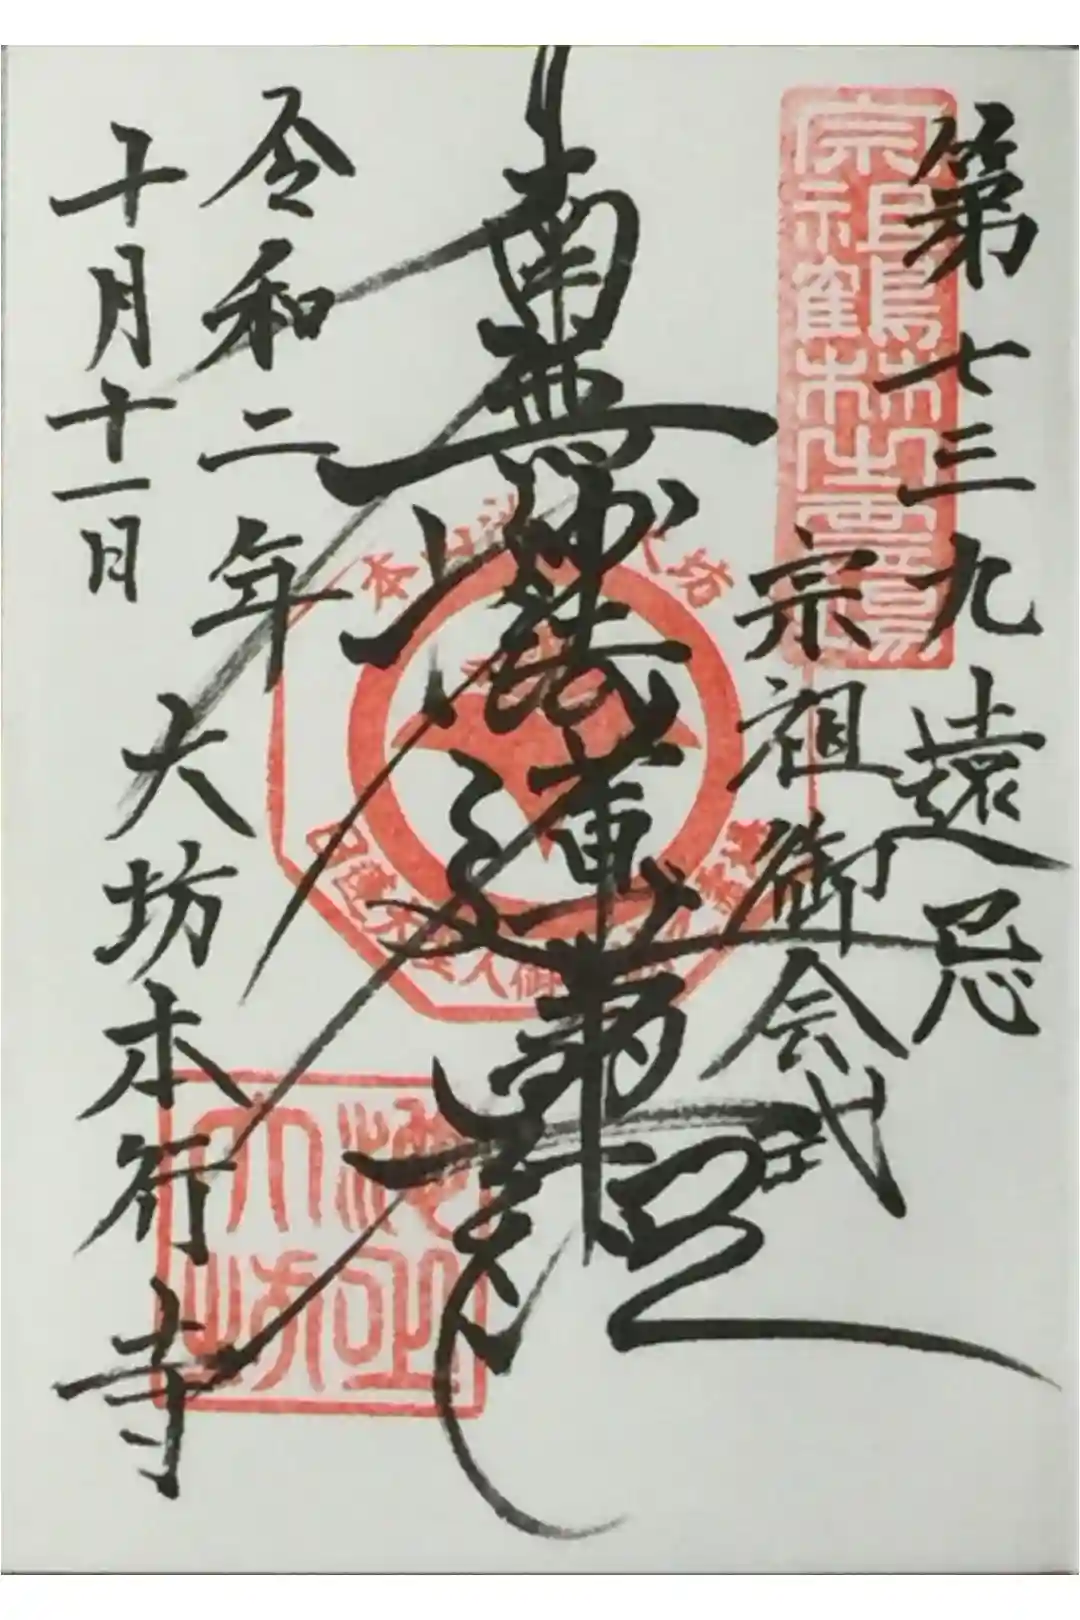 第七三九遠忌
宗祖御会式
南無妙法蓮華経
令和二年
十月十一日
大坊本行寺
宗祖鶴林出霊場
池上
大坊